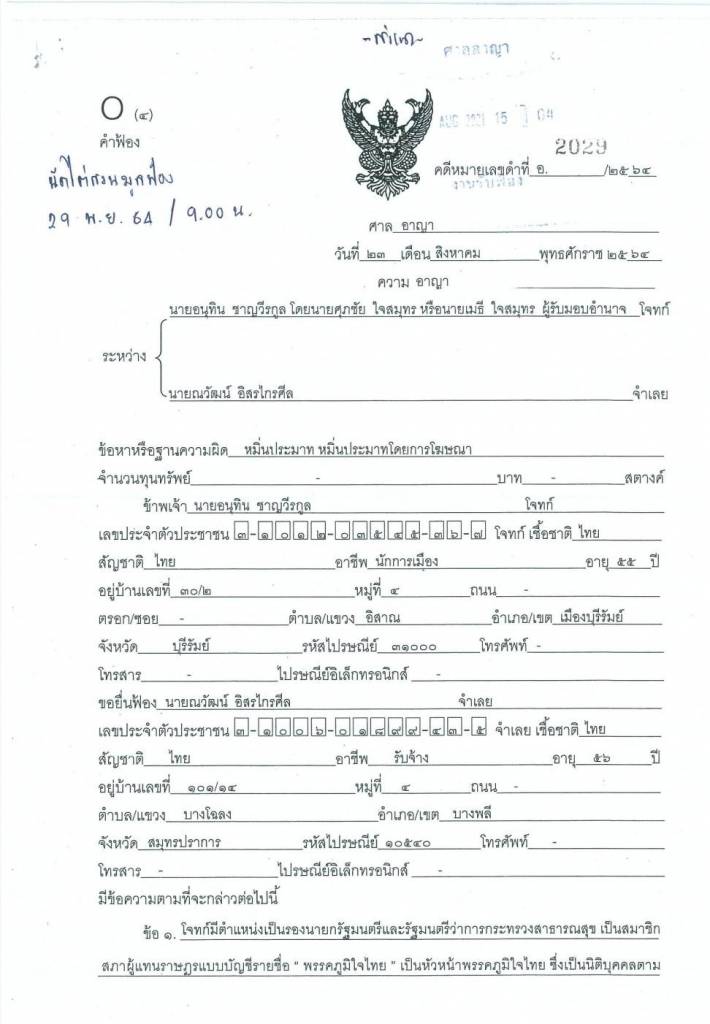 -สำเนา-
ศาลอาญา
O (๔)
คำฟ้อง
AUG 2021 15 04
2029
คดีหมายเลขดำที่ อ. /๒๕๖๔
งานรับฟ้อง
นัดไต่สวนมูลฟ้อง
29 พ.ย. 64 / 9.00 น.
ศาล อาญา
วันที่ ๒๓ เดือน สิงหาคม พุทธศักราช ๒๕๖๔
ความ อาญา
นายอนุทิน ชาญวีรกูล โดยนายศุภชัย ใจสมุทร หรือนายเมธี ใจสมุทร ผู้รับมอบอำนาจ โจทก์
ระหว่าง
นายณวัฒน์ อิสรไกรศีล จำเลย
ข้อหาหรือฐานความผิด หมิ่นประมาท หมิ่นประมาทโดยการโฆษณา
จำนวนทุนทรัพย์ - บาท - สตางค์
ข้าพเจ้า นายอนุทิน ชาญวีรกูล โจทก์
เลขประจำตัวประชาชน ๓-๑๐๑๒-๐๓๕๔๕-๓๖-๗ โจทก์ เชื้อชาติ ไทย
สัญชาติ ไทย อาชีพ นักการเมือง อายุ ๕๕ ปี
อยู่บ้านเลขที่ ๓๐/๒ หมู่ที่ ๔ ถนน -
ตรอก/ซอย - ตำบล/แขวง อิสาณ อำเภอ/เขต เมืองบุรีรัมย์
จังหวัด บุรีรัมย์ รหัสไปรษณีย์ ๓๑๐๐๐ โทรศัพท์ -
โทรสาร - ไปรษณีย์อิเล็กทรอนิกส์ -
ขอยื่นฟ้อง นายณวัฒน์ อิสรไกรศีล จำเลย
เลขประจำตัวประชาชน ๓-๑๐๐๖-๐๑๘๙๙-๔๓-๕ จำเลย เชื้อชาติ ไทย
สัญชาติ ไทย อาชีพ รับจ้าง อายุ ๕๖ ปี
อยู่บ้านเลขที่ ๑๐๑/๑๔ หมู่ที่ ๔ ถนน -
ตำบล/แขวง บางโฉลง อำเภอ/เขต บางพลี
จังหวัด สมุทรปราการ รหัสไปรษณีย์ ๑๐๕๔๐ โทรศัพท์ -
โทรสาร - ไปรษณีย์อิเล็กทรอนิกส์ -
มีข้อความตามที่จะกล่าวต่อไปนี้
ข้อ ๑. โจทก์มีตำแหน่งเป็นรองนายกรัฐมนตรีและรัฐมนตรีว่าการกระทรวงสาธารณสุข เป็นสมาชิก
สภาผู้แทนราษฎรแบบบัญชีรายชื่อ " พรรคภูมิใจไทย " เป็นหัวหน้าพรรคภูมิใจไทย ซึ่งเป็นนิติบุคคลตาม